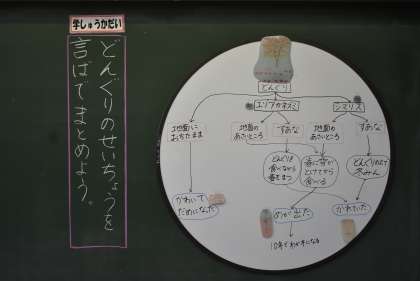 学しゅうかだい
どんぐりのせいちょうを
言ばでまとめよう。
どんぐり
エゾアカネズミ
シマリス
地面に
おちたまま
地面の
あさいところ
すあな
地面の
あさいところ
すあな
どんぐりを
食べながら
春をまつ
春に雪が
とけてから
食べる
どんぐりの上で
冬みん
かわいて
だめになった
めが出た
かれていた
10年でわか木になる